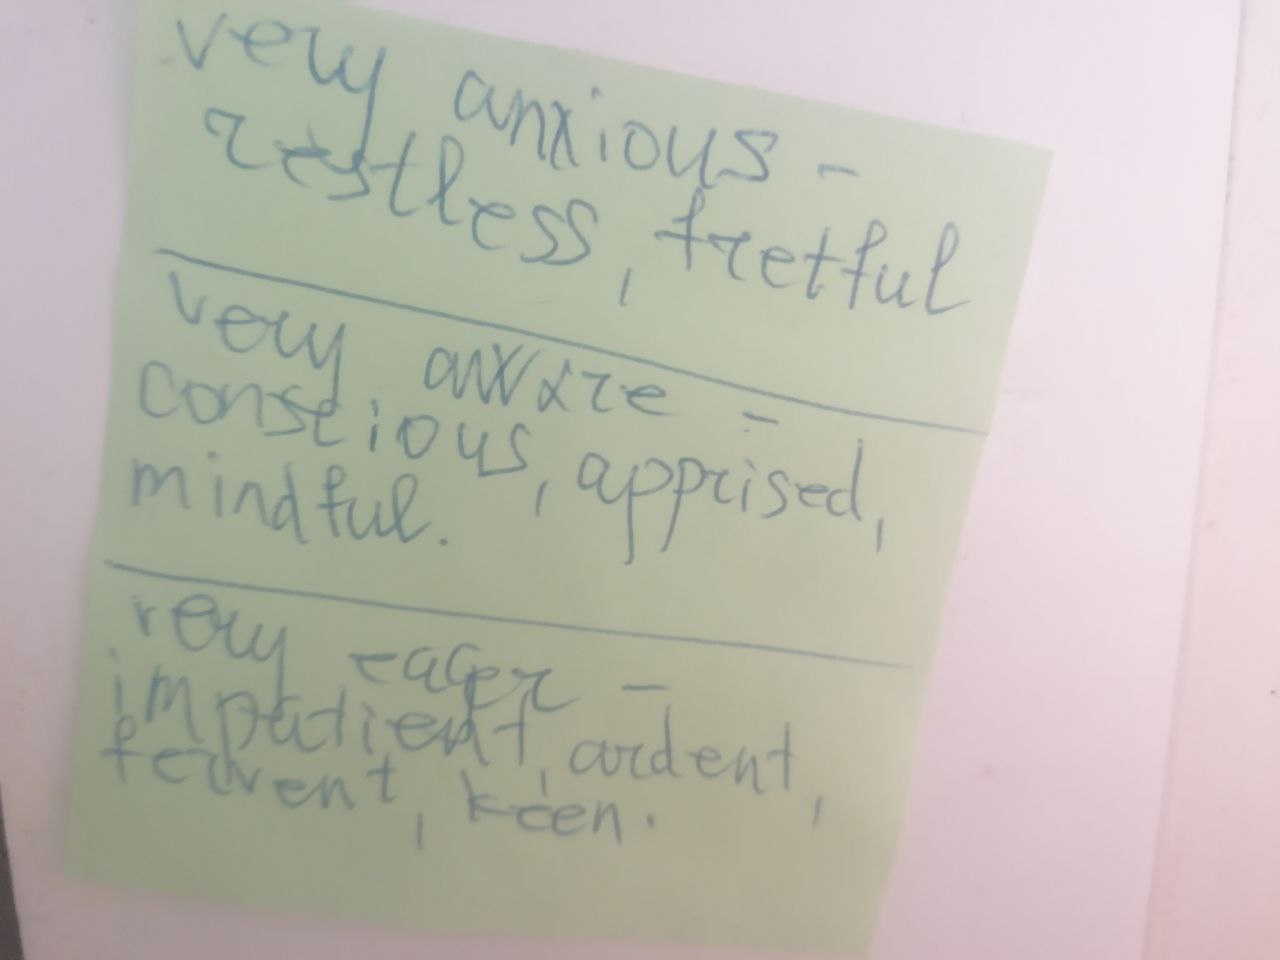 very anxious -
restless, fretful
very aware -
conscious, apprised,
mindful.
very eager -
impatient, ardent,
fervent, keen.